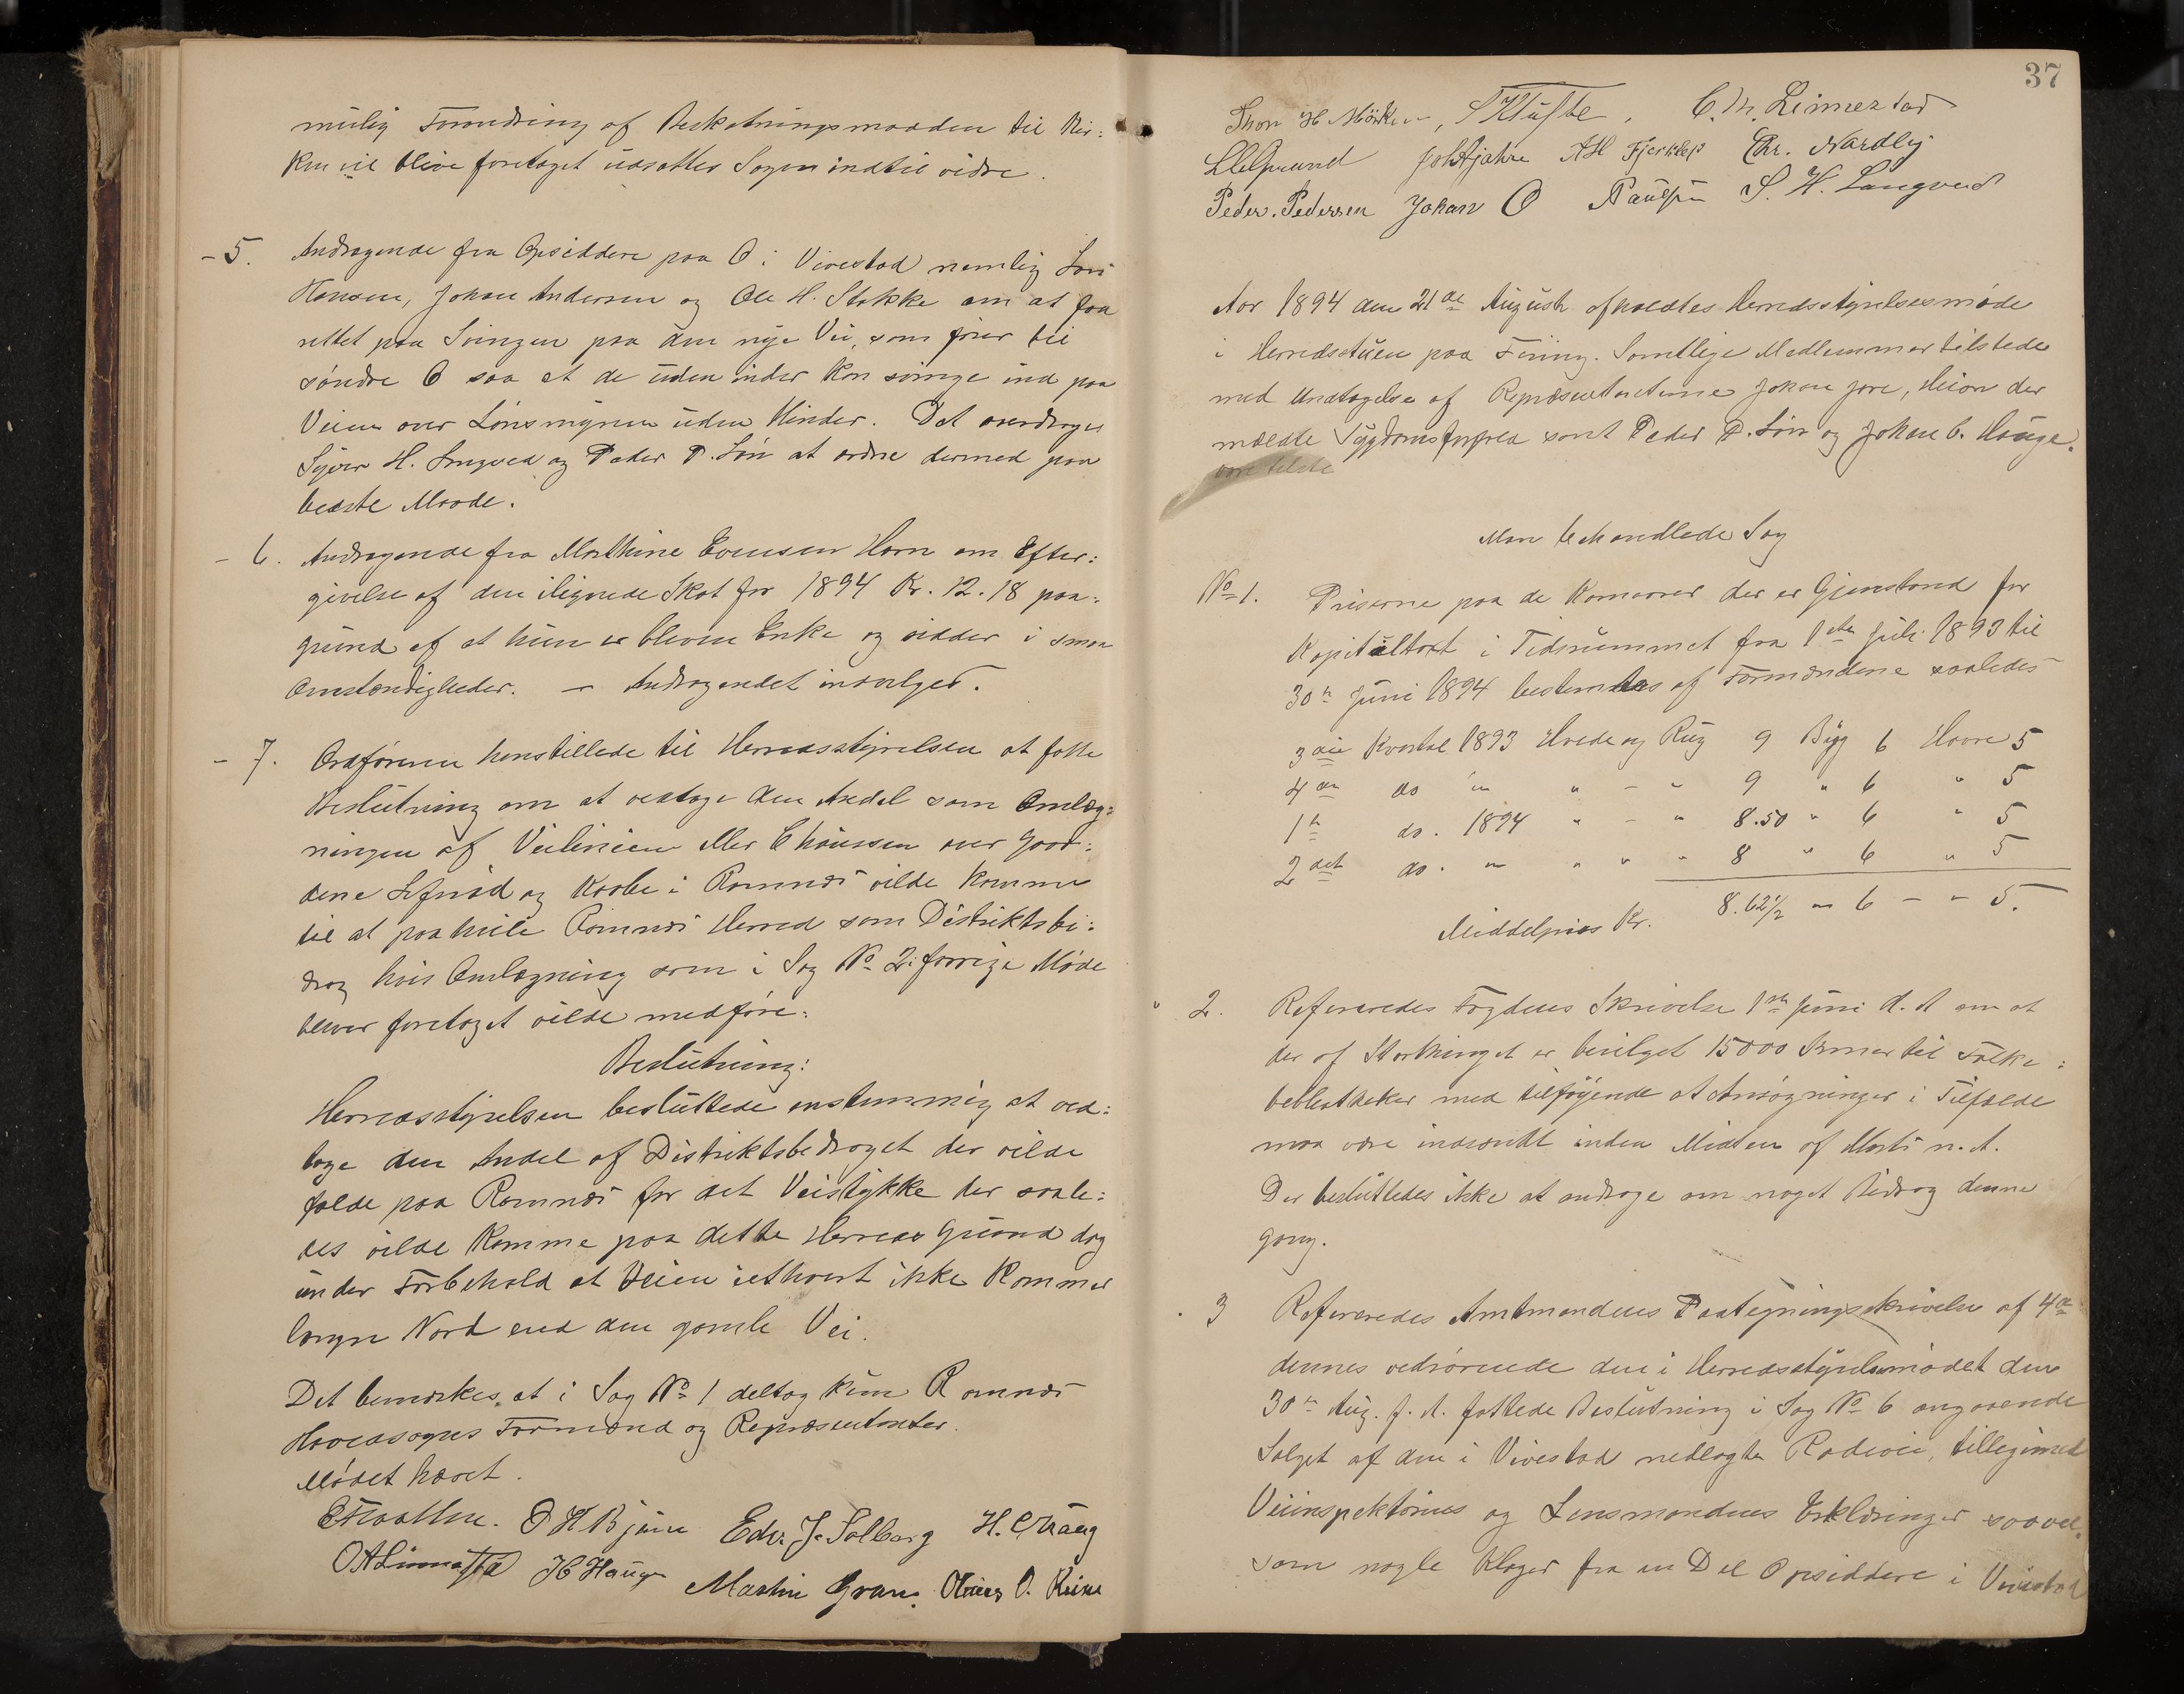 mulig Forandring af Beskatningsmaaden til Kir:
ken vil blive foretaget udsattes Sagen indtil videre.
- 5. Andragende fra Opsiddere paa O i Vivestad nemlig Lars
Hansen, Johan Andersen og Ole H. Stokke om at faa
rettet paa Svingen paa den nye Vei, som fører til
søndre O saa at de uden inder kan svinge ind paa
Veien over Lønsmyren uden Hinder. Det overdroges
Sører H. Langved og Peder P. Løn at ordne dermed paa
bedste Maade.
- 6. Andragende fra Mathine Evensen Horn om Efter:
givelse af den ilignede Skat for 1894 Kr. 12.18 paa:
grund af at hun er bleven Enke og sidder i smaa
Omstændigheder. — Andragendet innvilges.
- 7. Ordføreren henstillede til Herredsstyrelsen at fatte
Beslutning om at vedtage den Andel som Omlæg:
ningen af Veilinien eller Chausseen over Gaar:
dene Lefsrød og Kaabe i Ramnæs vilde komme
til at paahvile Ramnæs Herred som Distriktsbi:
drag hvis Omlægning som i Sag No 2 i forrige Møde
blever foretaget vilde medføre:
Beslutning:
Herredsstyrelsen besluttede enstemmig at ved:
tage den Andel af Distriktsbedraget der vilde
falde paa Ramnæs for det Veistykke der saale:
des vilde komme paa dette Herreds Grund dog
under Forbehold at Veien iethvert ikke kommer
længer Nord end den gamle Vei.
Det bemærkes, at i Sag No 1 deltog kun Ramnæs
Hovedsogns Formænd og Repræsentanter.
Mødet hævet.
O H Bjune Edv. J. Solberg H. C. Haug
O A Linnestad H Hauge Martin Gran. Olaus O. Reine
37
Thor H Mörken, S Klufte, C. M. Linnestad
Joh Hjahre A H Fjerklep Chr. Nardlig
Peder. Pedersen Johan O Paulsen S. H. Langved
Aar 1894 den 21de August afholdtes Herredsstyrelsesmøde
i Herredsstuen paa Firing. Samtlige Medlemmer tilstede
med Undtagelse af Repræsentanterne Johan Jare, Heian der
meldte Sygdomsforfald samt Peder P. Løn og Johan C. Hauge.
Man behandlede Sag
No 1. Priserne paa de Kornvarer der er Gjenstand for
Kapitaltakst i Tidsrummet fra 1ste Juli 1893 til
30te Juni 1894 bestemtes af Formændene saaledes
3die Kvartal 1893 Hvede og Rug 9 Byg 6 Havre 5
4de do " " - " 9 " 6 " 5
1ste do. 1894 " - " 8.50 " 6 " 5
2det do. " " " " 8 " 6 " 5
Middelpris Kr. 8.62½ " 6 - " 5.
" 2. Refereredes Fogdens Skrivelse 1ste Juni d. A om at
der af Storthinget er bevilget 15000 Kroner til Folke:
bebliotheker med tilføjende at Ansøgninger i Tilfælde
maa være indsendt inden Midten af Marts n. A.
Der besluttedes ikke at andrage om noget Bidrag denne
gang.
. 3 Refereredes Amtmandens Paategningsskrivelse af 4de
dennes vedrørende den i Herredsstyrelsesmødet den
30te Aug. f. A. fattede Beslutning i Sag No 6 angaaende
Salget af den i Vivestad nedlagte Rodevei, tilligemed
Veiinspektørens og Lensmandens Erklæringer saavel
som nogle Klager fra en Del Opsiddere i Vivestad